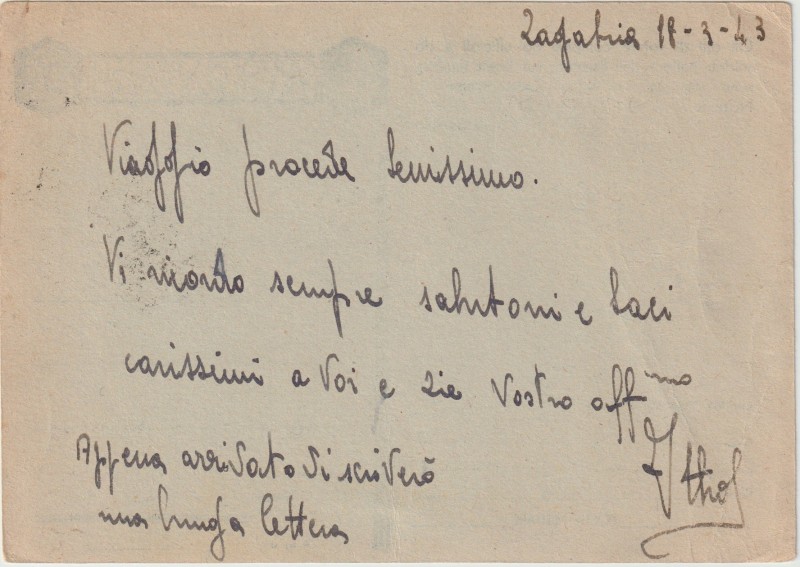 Zagabria 18-3-43
Viaggio procede benissimo.
Vi ricordo sempre salutoni e baci
carissimi a Voi e zie Vostro aff.mo
Appena arrivato Vi scriverò
una lunga lettera